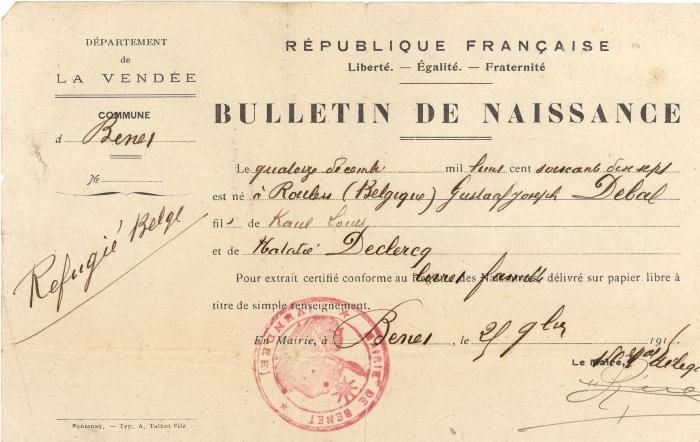 DÉPARTEMENT
de
LA VENDÉE
COMMUNE
d Benet
No
Refugié Belge
RÉPUBLIQUE FRANÇAISE
Liberté. — Égalité. — Fraternité
BULLETIN DE NAISSANCE
Le quatorze décembre mil huit cent soixante dix sept
est né à Roulers (Belgique) Gustaaf Joseph Debal
fils de Karel Louis
et de Natalie Declercq
Pour extrait certifié conforme au Registre des Naissances livret famille délivré sur papier libre à
titre de simple renseignement.
En Mairie, à Benet, le 25 9bre 191
Le Maire,
MAIRIE DE BENET
Fontenay. — Typ. A. Talbot Fils